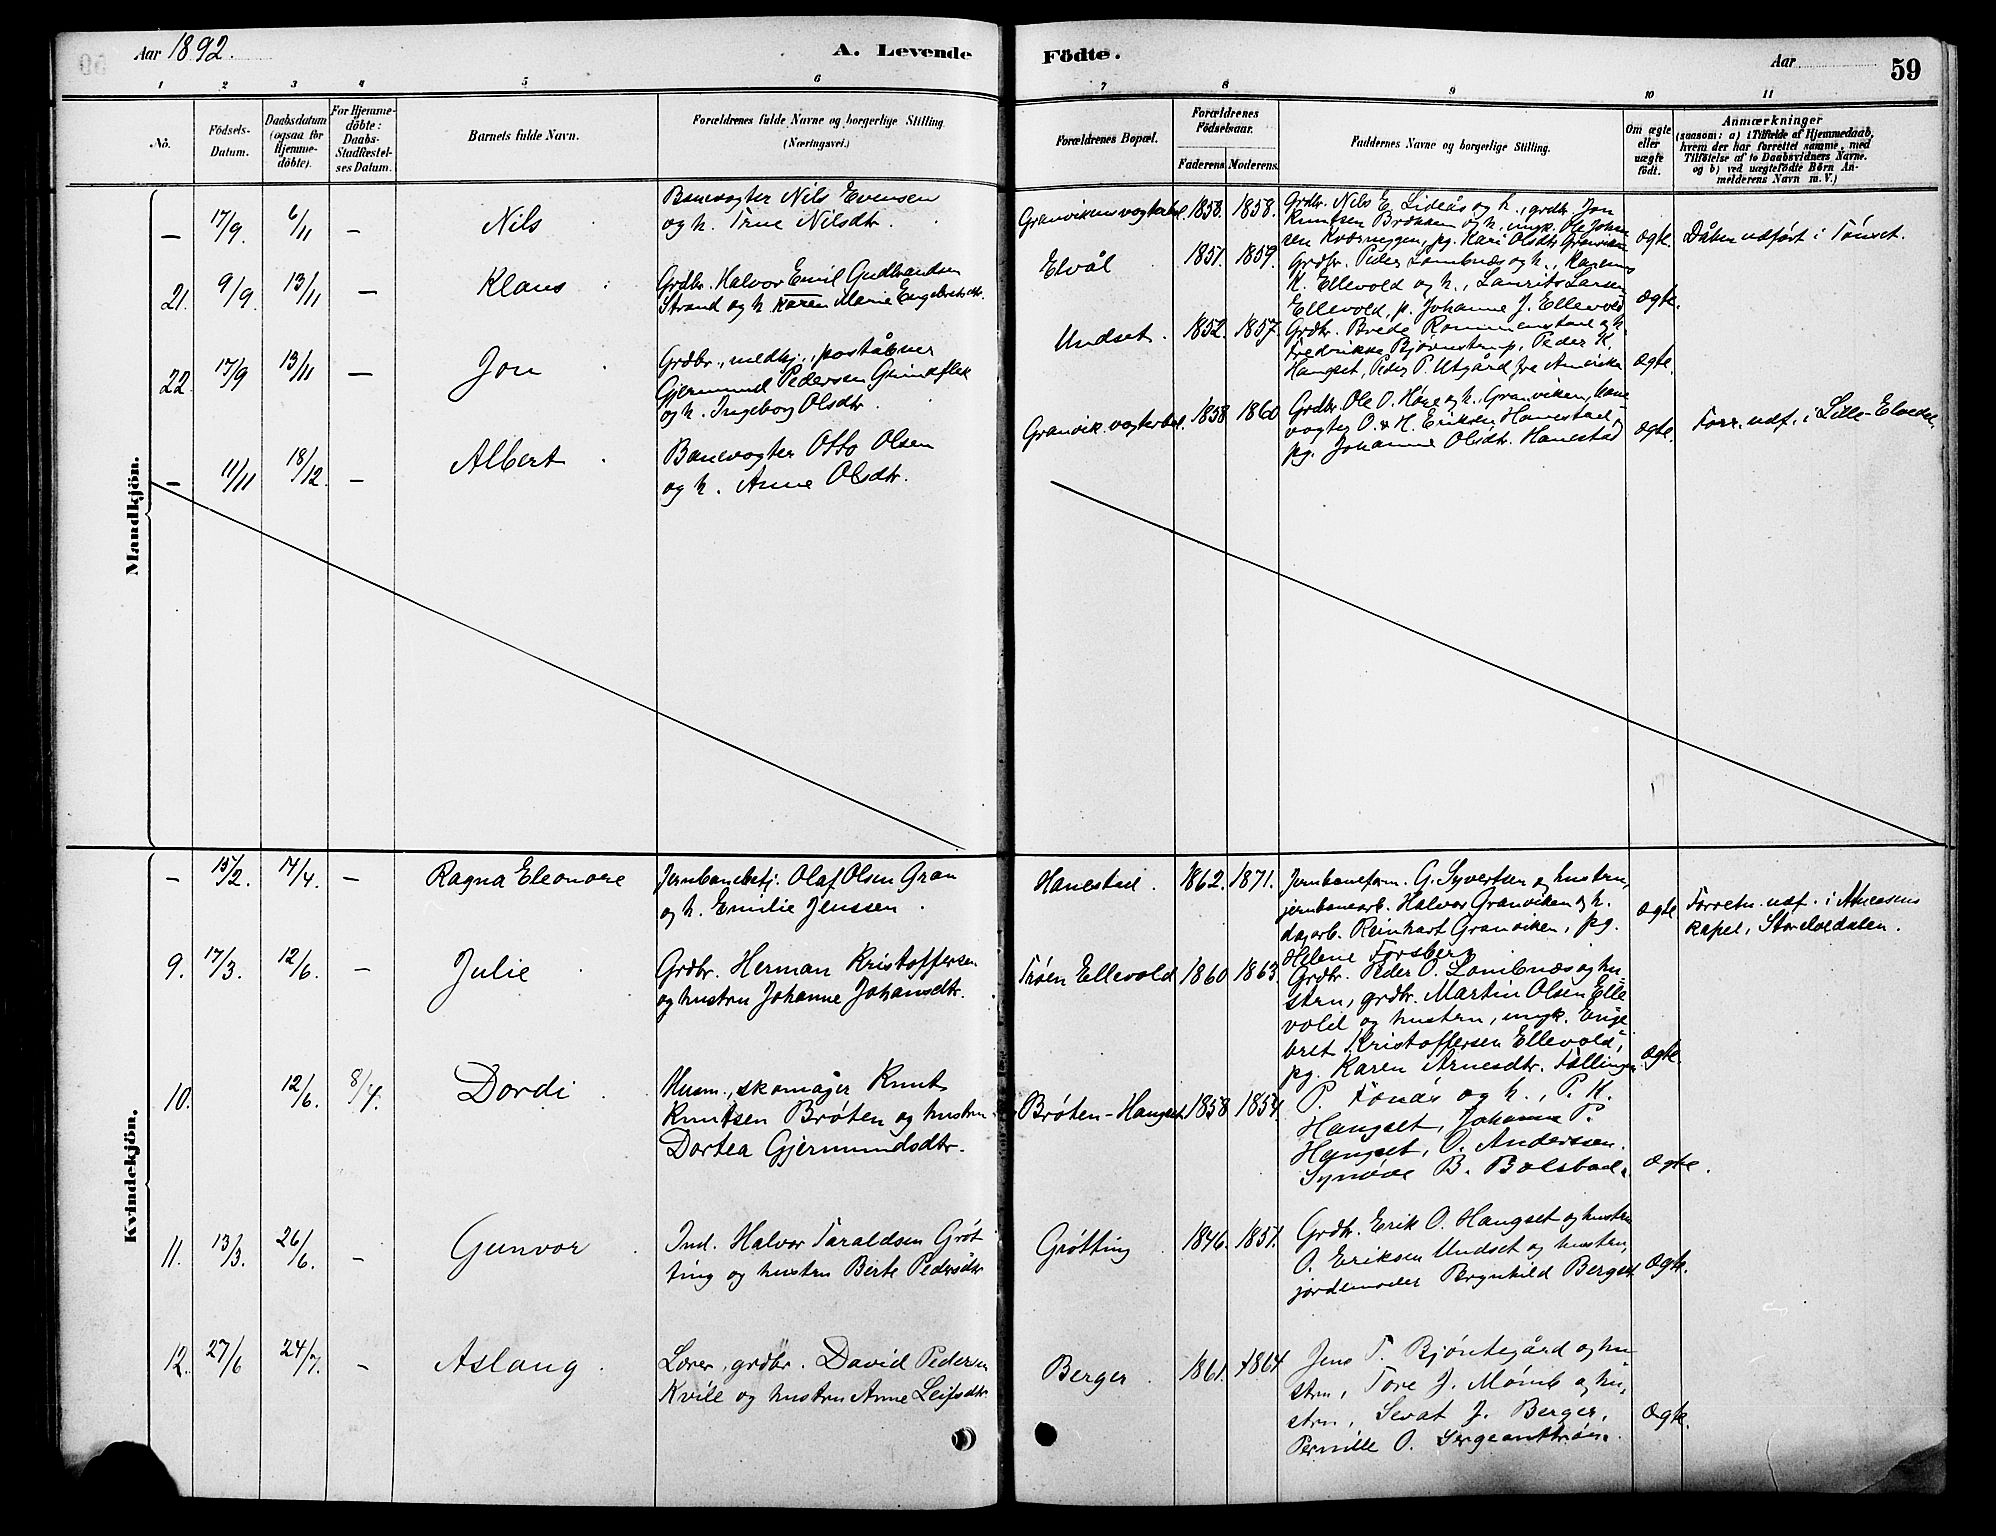 Aar 1892.
A. Levende Födte.
Aar
59
1 2 3 4 5 6 7 8 9 10 11
No.
Födsels-Datum.
Daabsdatum (ogsaa for Hjemme-döbte).
For Hjemme-döbte: Daabs-Stadfæstel-ses Datum.
Barnets fulde Navn.
Forældrenes fulde Navne og borgerlige Stilling. (Næringsvei.)
Forældrenes Bopæl.
Forældrenes Födselsaar.
Faderens Moderens.
Faddernes Navne og borgerlige Stilling.
Om ægte eller uægte födt.
Anmærkninger
(saasom: a) i Tilfælde af Hjemmedaab, hvem der har forrettet samme, med Tilföielse af to Daabsvidners Navne. og b) ved uægtefödte Börn An-melderens Navn m. V.)
Mandkjön.
— 17/9. 6/11 — Nils
Banevogter Nils Evensen
og h. Trine Nilsdtr.
Granvikens vogterbol. 1858. 1858.
Grdbr. Nils E. Lideås og h., grdbr. Jon
Knutsen Brækken og h., ungk. Ole Johan
sen Kværnyggen, pg. Kari Olsdtr. Granviken
ægte. Dåben udført i Tönset.
21. 9/9. 13/11 — Klaus
Grdbr. Halvor Emil Gudbrandsen
Strand og h. Karen Marie Engebretsdtr.
Elvål 1851. 1859.
Grdbr. Peder Lombnæs og h., Karenus
K. Ellevold og h., Laurits Larsen
Ellevold, p. Johanne J. Ellevold
ægte.
22. 17/9 13/11 — Jon
Grdbr., medhj., poståbner
Gjermund Pedersen
og h. Ingeborg Olsdtr.
Undset. 1852. 1857.
Grdbr. Brede Rommenstad og h.
Fredrikke Bjørnstrup, Peder K.
Hangset, Peder P. Utgård fra Amerika
ægte.
— 11/11 18/12. — Albert
Banevogter Otto Olsen
og h. Anne Olsdtr.
Granvik. vogterbol. 1858 1860
Grdbr. Ole O. Høye og h., Granviken, bane
vogter O. H. Eriksen Hanestad,
pg. Johanne Olsdtr. Hanestad
ægte. Forr. udf. i Lille-Elvedal.
Kvindekjön.
— 15/2. 17/4. — Ragna Eleonore
Jernbanebetj. Olaf Olsen Gran
og h. Emilie Jenssen.
Hanestad. 1862. 1871.
Jernbaneform. G. Syvertsen og hustru,
jernbanearb. Halvor Granviken og h.
dagarb. Reinhart Granviken, pg.
Helene Forsberg
ægte Forretn. udf. i
kapel, Storelvedalen.
9. 17/3. 12/6. — Julie
Grdbr. Herman Kristoffersen
og hustru Johanne Johansdtr.
Trøen Ellevold 1860 1863.
Grdbr. Peder O. Lombnæs og hu-
stru, grdbr. Martin Olsen Elle
vold og hustru, ungk. Enge
bret Kristoffersen Ellevold,
pg. Karen Arnesdtr. Fallingen
ægte.
10. 12/6. 8/4. Dordi
Husm., skomager Knut
Knutsen Brøten og hustru
Dortea Gjermundsdtr.
Brøten-Hangset 1858 1854.
P. Fonås og h., P. K.
Hangset, Johanne P.
Hangset, O. Anderssen.
Synøve B. Bolstad.
ægte.
11. 13/3. 26/6. — Gunvor
Ind. Halvor Taraldsen Grøt
ting og hustru Berte Pedersdtr
Grøtting 1846. 1851.
Grdbr. Erik O. Hangset og hustru
O. Eriksen Undset og hustru,
jordemoder Brynhild Berget
ægte.
12. 27/6 24/7. — Aslaug
Lærer, grdbr. David Pedersen
Kville og hustru Anne Leifsdtr.
Berger 1861. 1864
Jens T. Bjøntegård og hu
stru, Tore J. Momb og hu
stru, Sevat J. Berger,
Pernille O. Sergeanttrøen.
ægte.